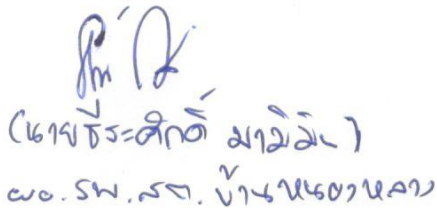 (นายธีระศักดิ์ มามิมิน)
ผอ.รพ.สต.บ้านหนองหลวง